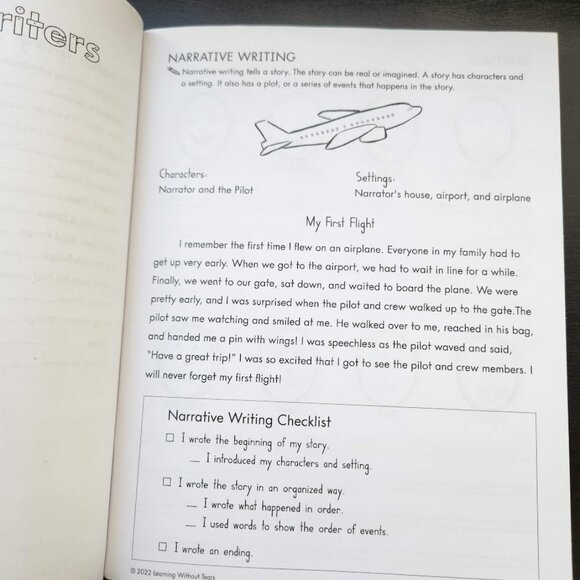 riters
NARRATIVE WRITING
Narrative writing tells a story. The story can be real or imagined. A story has characters and
a setting. It also has a plot, or a series of events that happens in the story.
Characters:
Narrator and the Pilot
Settings:
Narrator's house, airport, and airplane
My First Flight
I remember the first time I flew on an airplane. Everyone in my family had to
get up very early. When we got to the airport, we had to wait in line for a while.
Finally, we went to our gate, sat down, and waited to board the plane. We were
pretty early, and I was surprised when the pilot and crew walked up to the gate.The
pilot saw me watching and smiled at me. He walked over to me, reached in his bag,
and handed me a pin with wings! I was speechless as the pilot waved and said,
"Have a great trip!" I was so excited that I got to see the pilot and crew members. I
will never forget my first flight!
Narrative Writing Checklist
I wrote the beginning of my story.
I introduced my characters and setting.
I wrote the story in an organized way.
I wrote what happened in order.
I used words to show the order of events.
I wrote an ending.
© 2022 Learning Without Tears